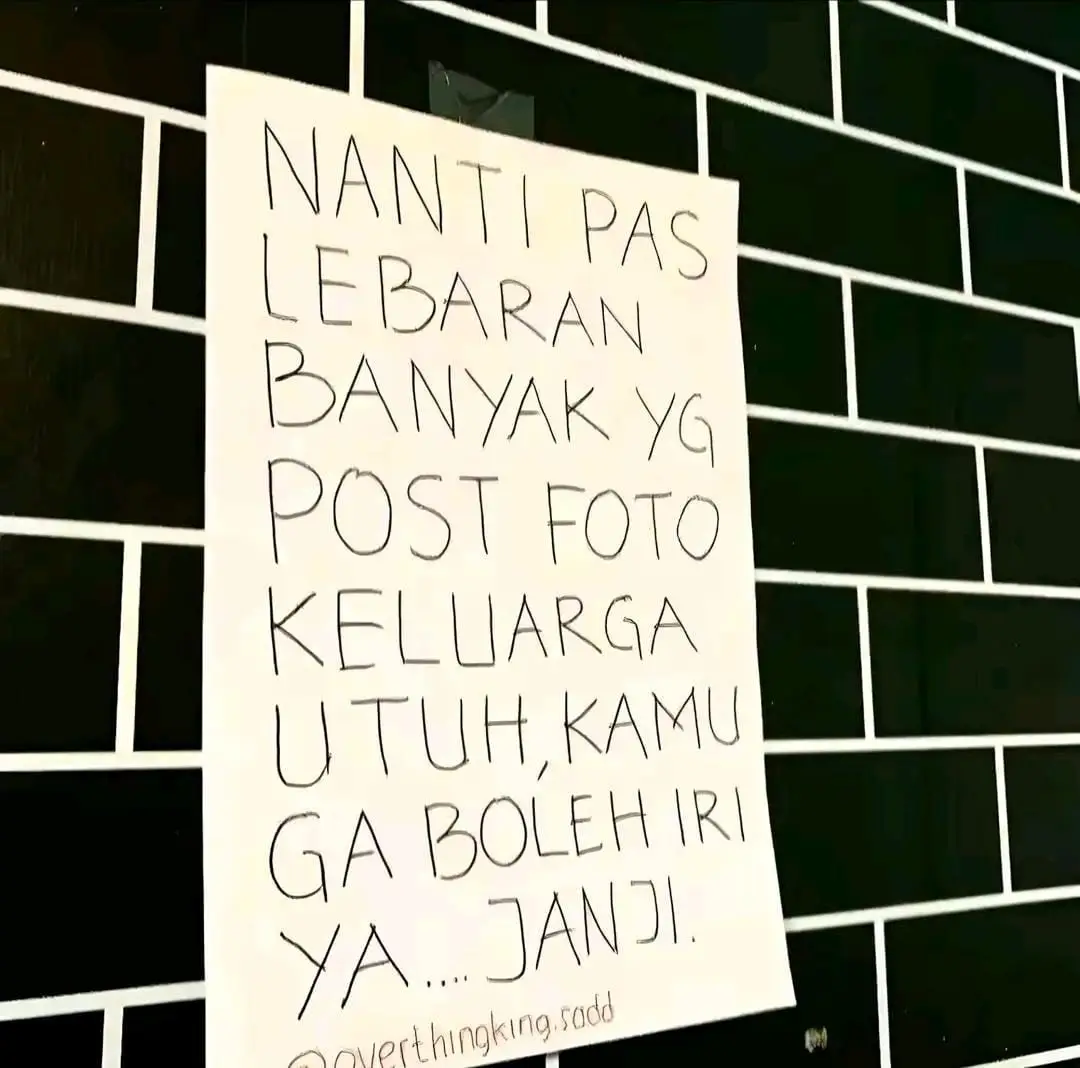 NANTI PAS
LEBARAN
BANYAK YG
POST FOTO
KELUARGA
UTUH, KAMU
GA BOLEH IRI
YA.... JANJI.
@overthingking.sadd